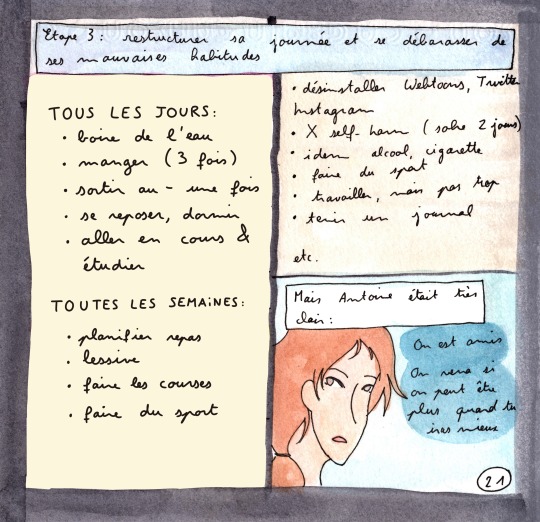 Etape 3: restructurer sa journée et se débarasser de
ses mauvaises habitudes
TOUS LES JOURS:
• boire de l'eau
• manger (3 fois)
• sortir au - une fois
• se reposer, dormir
• aller en cours &
étudier
TOUTES LES SEMAINES:
• planifier repas
• lessive
• faire les courses
• faire du sport
• désinstaller Webtoons, Twitter
Instagram
• X self-harm (sobre 2 jours)
• idem alcool, cigarette
• faire du sport
• travailler, mais pas trop
• tenir un journal
etc.
Mais Antoine était très
clair:
On est amis
On verra si
on peut être
plus quand tu
iras mieux
21